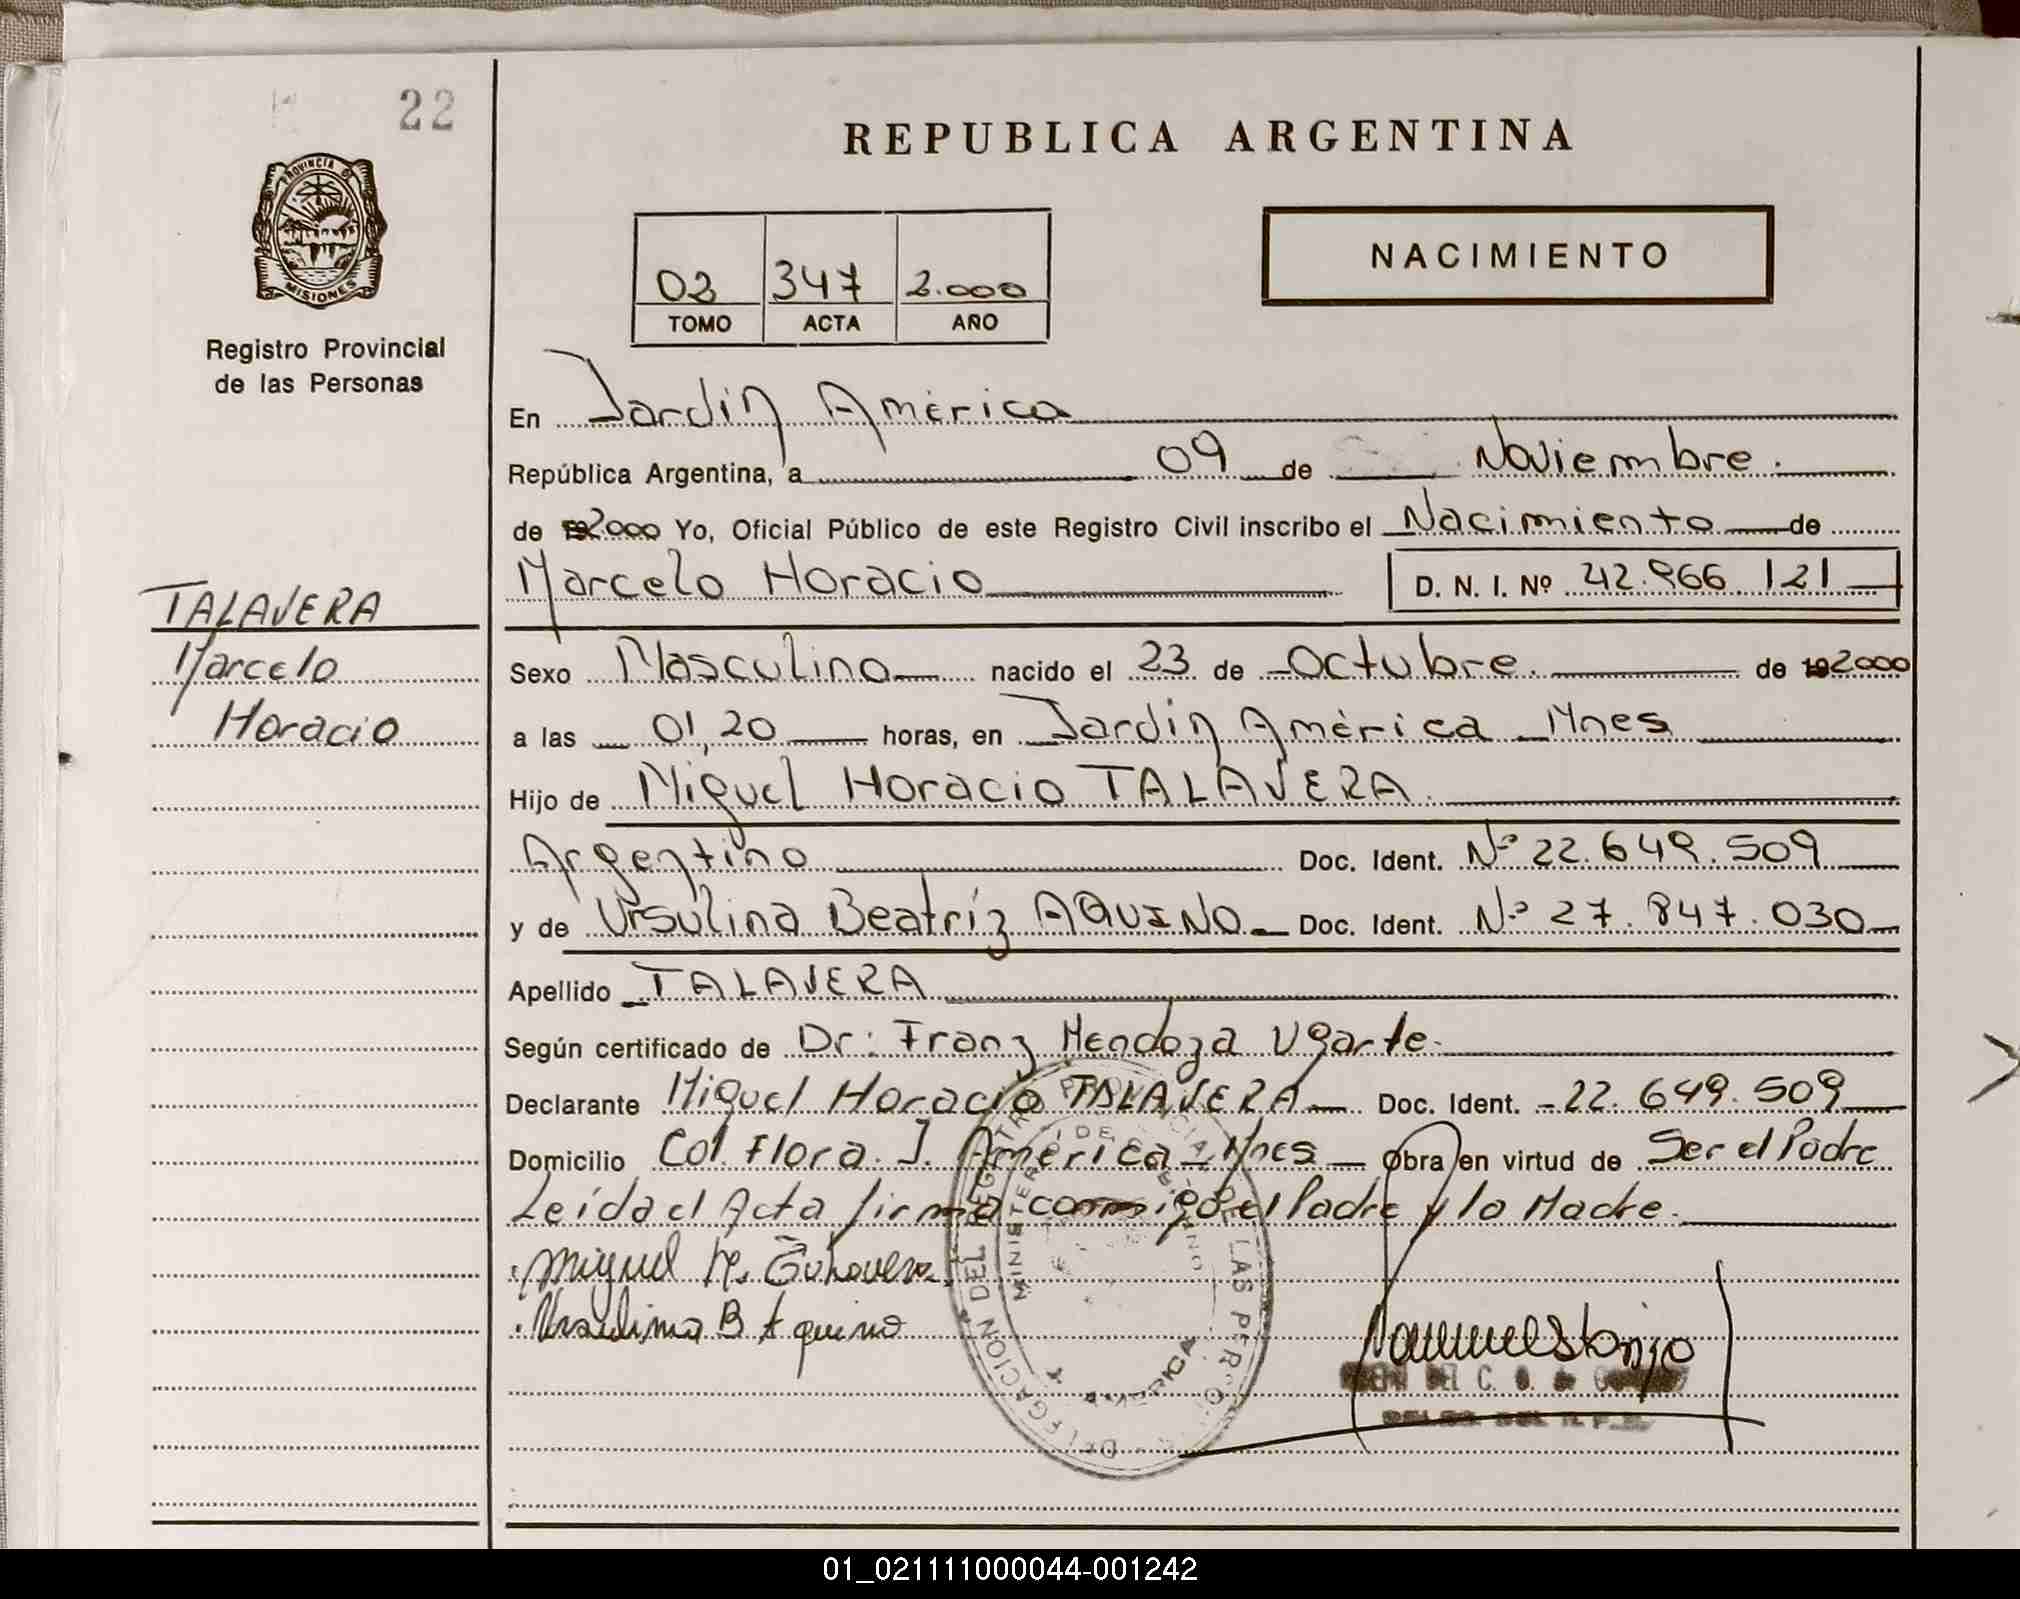 22
REPUBLICA ARGENTINA
PROVINCIA DE
MISIONES
Registro Provincial
de las Personas
02 347 2.000
TOMO ACTA AÑO
NACIMIENTO
En Jardín América
República Argentina, a 09 de Noviembre.
de 2.000 Yo, Oficial Público de este Registro Civil inscribo el Nacimiento de
Marcelo Horacio D. N. I. Nº 42.966.121
TALAVERA
Marcelo
Horacio
Sexo Masculino nacido el 23 de Octubre. de 192000
a las 01,20 horas, en Jardín América Mnes
Hijo de Miguel Horacio TALAVERA.
Argentino Doc. Ident. Nº 22.649.509
y de Ursulina Beatríz AQUINO Doc. Ident. Nº 27.847.030
Apellido TALAVERA
Según certificado de Dr: Franz Mendoza Ugarte.
Declarante Miguel Horacio TALAVERA Doc. Ident. 22.649.509
Domicilio Col. Flora. J. América - Mnes Obra en virtud de Ser el Padre
Leída el Acta firma conmigo el Padre y la Madre.
Miguel H. Talavera
Ursulina B Aquino
DELEGACION DEL REGISTRO PROVINCIAL DE LAS PERSONAS
MINISTERIO DE GOBIERNO
01_021111000044-001242